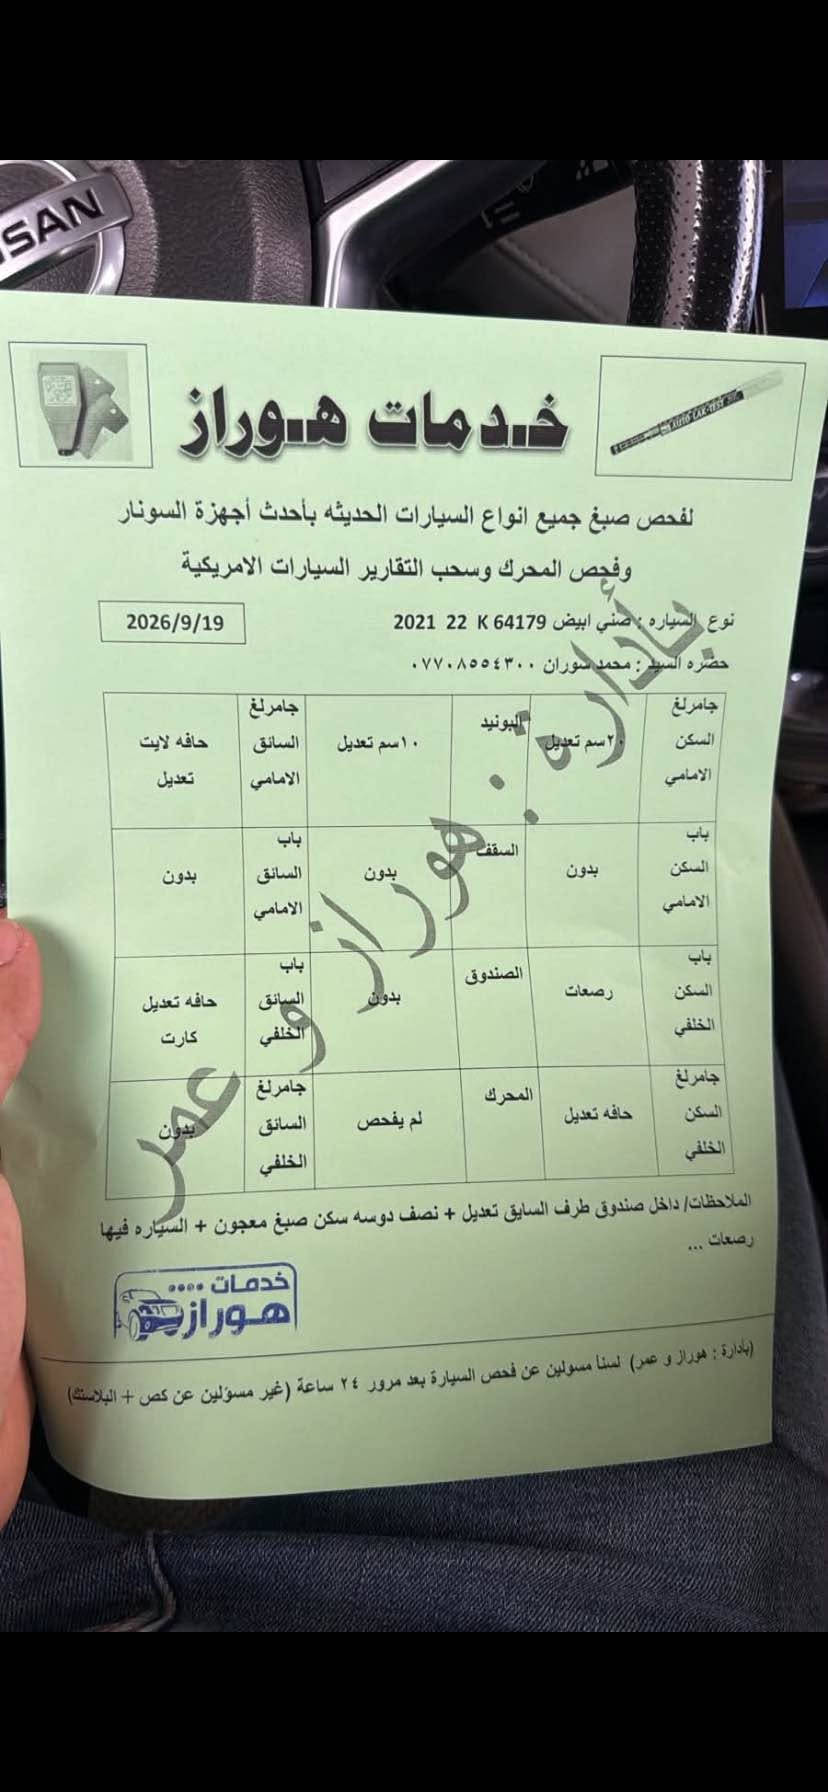 SAN
AUTO LAK-TEST
خدمات هوراز
لفحص صبغ جميع انواع السيارات الحديثه بأحدث أجهزة السونار
وفحص المحرك وسحب التقارير السيارات الامريكية
نوع السياره : صني ابيض 2021 22 K 64179
2026/9/19
حضره السيد : محمد سوران ٠٧٧٠٨٥٥٤٣٠٠
جامرلغ السكن الامامي
٢٠سم تعديل
البونيد
١٠سم تعديل
جامرلغ السائق الامامي
حافه لايت تعديل
باب السكن الامامي
بدون
السقف
بدون
باب السائق الامامي
بدون
باب السكن الخلفي
رصعات
الصندوق
بدون
باب السائق الخلفي
حافه تعديل كارت
جامرلغ السكن الخلفي
حافه تعديل
المحرك
لم يفحص
جامرلغ السائق الخلفي
بدون
بأدارة : هوراز و عمر
الملاحظات/ داخل صندوق طرف السايق تعديل + نصف دوسه سكن صبغ معجون + السياره فيها
رصعات ...
خدمات ....
هوراز
(بأدارة : هوراز و عمر) لسنا مسولين عن فحص السيارة بعد مرور ٢٤ ساعة (غير مسؤلين عن كص + البلاستك)